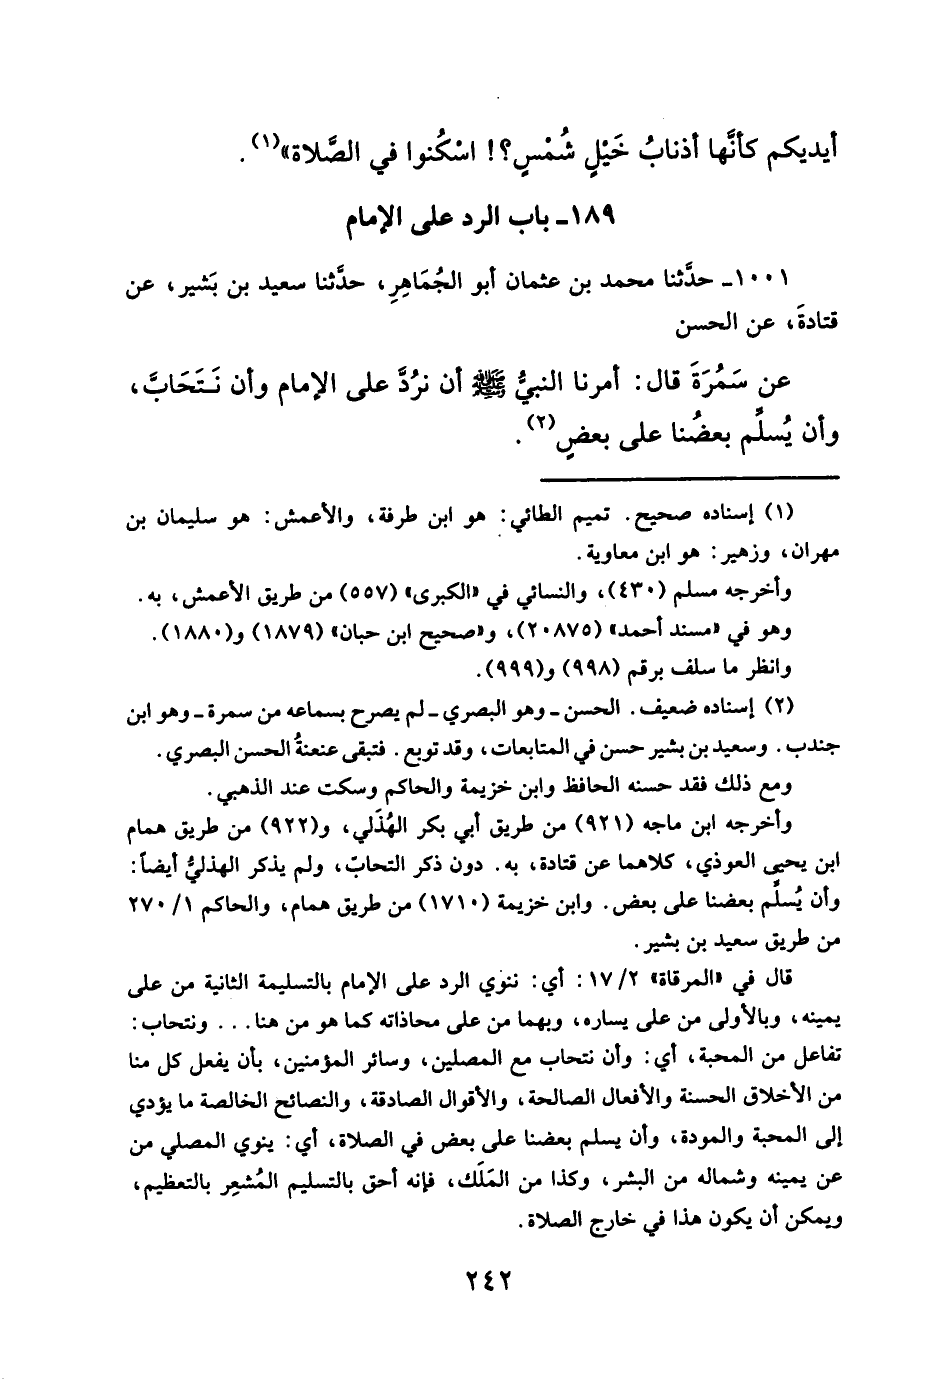 أيديكم كأنَّها أذنابُ خَيْلٍ شُمْسٍ؟! اسْكُنوا في الصَّلاة»(١).
١٨٩ـ باب الرد على الإمام
١٠٠١ـ حدَّثنا محمد بن عثمان أبو الجُمَاهِرِ، حدَّثنا سعيد بن بَشير، عن
قتادةَ، عن الحسن
عن سَمُرَةَ قال: أمرنا النبيُّ ﷺ أن نرُدَّ على الإمام وأن نَتَحَابَّ،
وأن يُسلِّم بعضُنا على بعضٍ(٢).
(١) إسناده صحيح. تميم الطائي: هو ابن طرفة، والأعمش: هو سليمان بن
مهران، وزهير: هو ابن معاوية.
وأخرجه مسلم (٤٣٠)، والنسائي في «الكبرى» (٥٥٧) من طريق الأعمش، به.
وهو في «مسند أحمد» (٢٠٨٧٥)، و«صحيح ابن حبان» (١٨٧٩) و(١٨٨٠).
وانظر ما سلف برقم (٩٩٨) و(٩٩٩).
(٢) إسناده ضعيف. الحسن ـ وهو البصري ـ لم يصرح بسماعه من سمرة ـ وهو ابن
جندب. وسعيد بن بشير حسن في المتابعات، وقد توبع. فتبقى عنعنةُ الحسن البصري.
ومع ذلك فقد حسنه الحافظ وابن خزيمة والحاكم وسكت عند الذهبي.
وأخرجه ابن ماجه (٩٢١) من طريق أبي بكر الهُذَلي، و(٩٢٢) من طريق همام
ابن يحيى العوذي، كلاهما عن قتادة، به. دون ذكر التحابّ، ولم يذكر الهذليُّ أيضاً:
وأن يُسلِّم بعضنا على بعض. وابن خزيمة (١٧١٠) من طريق همام، والحاكم ١/ ٢٧٠
من طريق سعيد بن بشير.
قال في «المرقاة» ٢/ ١٧: أي: ننوي الرد على الإمام بالتسليمة الثانية من على
يمينه، وبالأولى من على يساره، وبهما من على محاذاته كما هو من هنا... ونتحاب:
تفاعل من المحبة، أي: وأن نتحاب مع المصلين، وسائر المؤمنين، بأن يفعل كل منا
من الأخلاق الحسنة والأفعال الصالحة، والأقوال الصادقة، والنصائح الخالصة ما يؤدي
إلى المحبة والمودة، وأن يسلم بعضنا على بعض في الصلاة، أي: ينوي المصلي من
عن يمينه وشماله من البشر، وكذا من المَلَك، فإنه أحق بالتسليم المُشعِر بالتعظيم،
ويمكن أن يكون هذا في خارج الصلاة.
٢٤٢